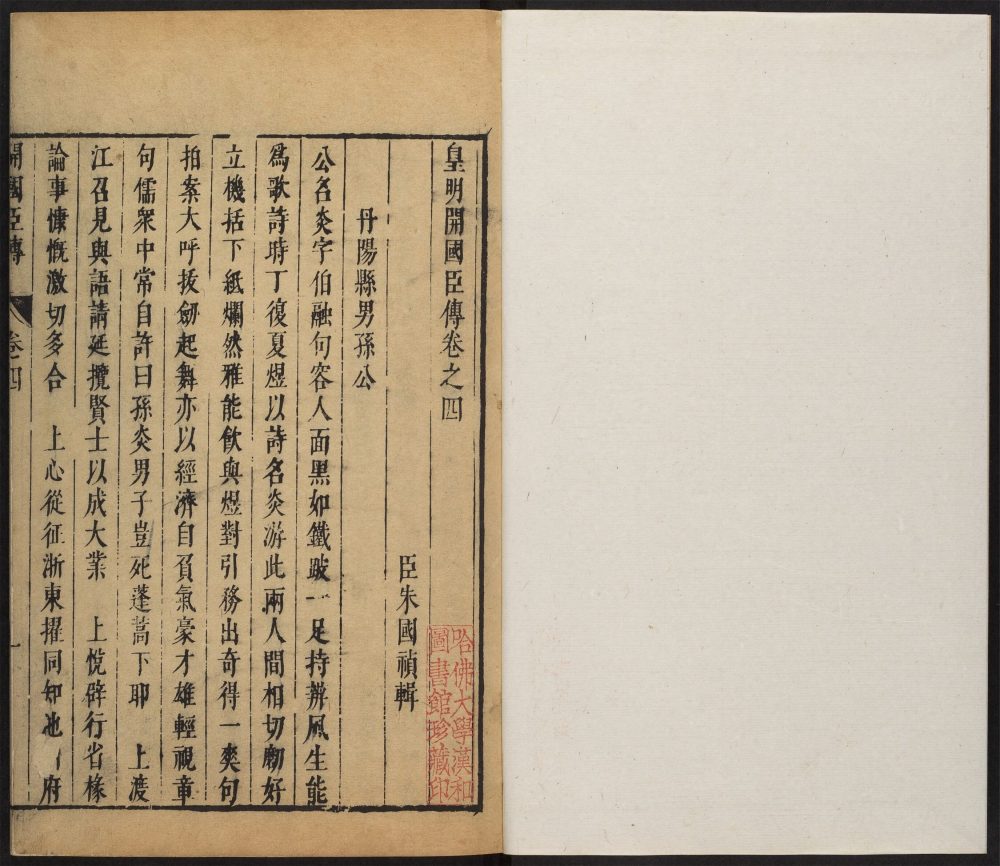 皇明開國臣傳卷之四
臣朱國禎輯
丹陽縣男孫公
公名炎字伯融句容人面黑如鐵跛一足持辨風生能
爲歌詩時丁復夏煜以詩名炎游此兩人間相切劘好
立機括下紙爛然雅能飲與煜對引務出奇得一奭句
拍案大呼拔劒起舞亦以經濟自負氣豪才雄輕視章
句儒衆中常自許曰孫炎男子豈死蓬蒿下耶 上渡
江召見與語請延攬賢士以成大業 上悅辟行省椽
論事慷慨激切多合 上心從征浙東擢同知池 府
開國臣傳 卷四 一
哈佛大學漢和
圖書館珍藏印